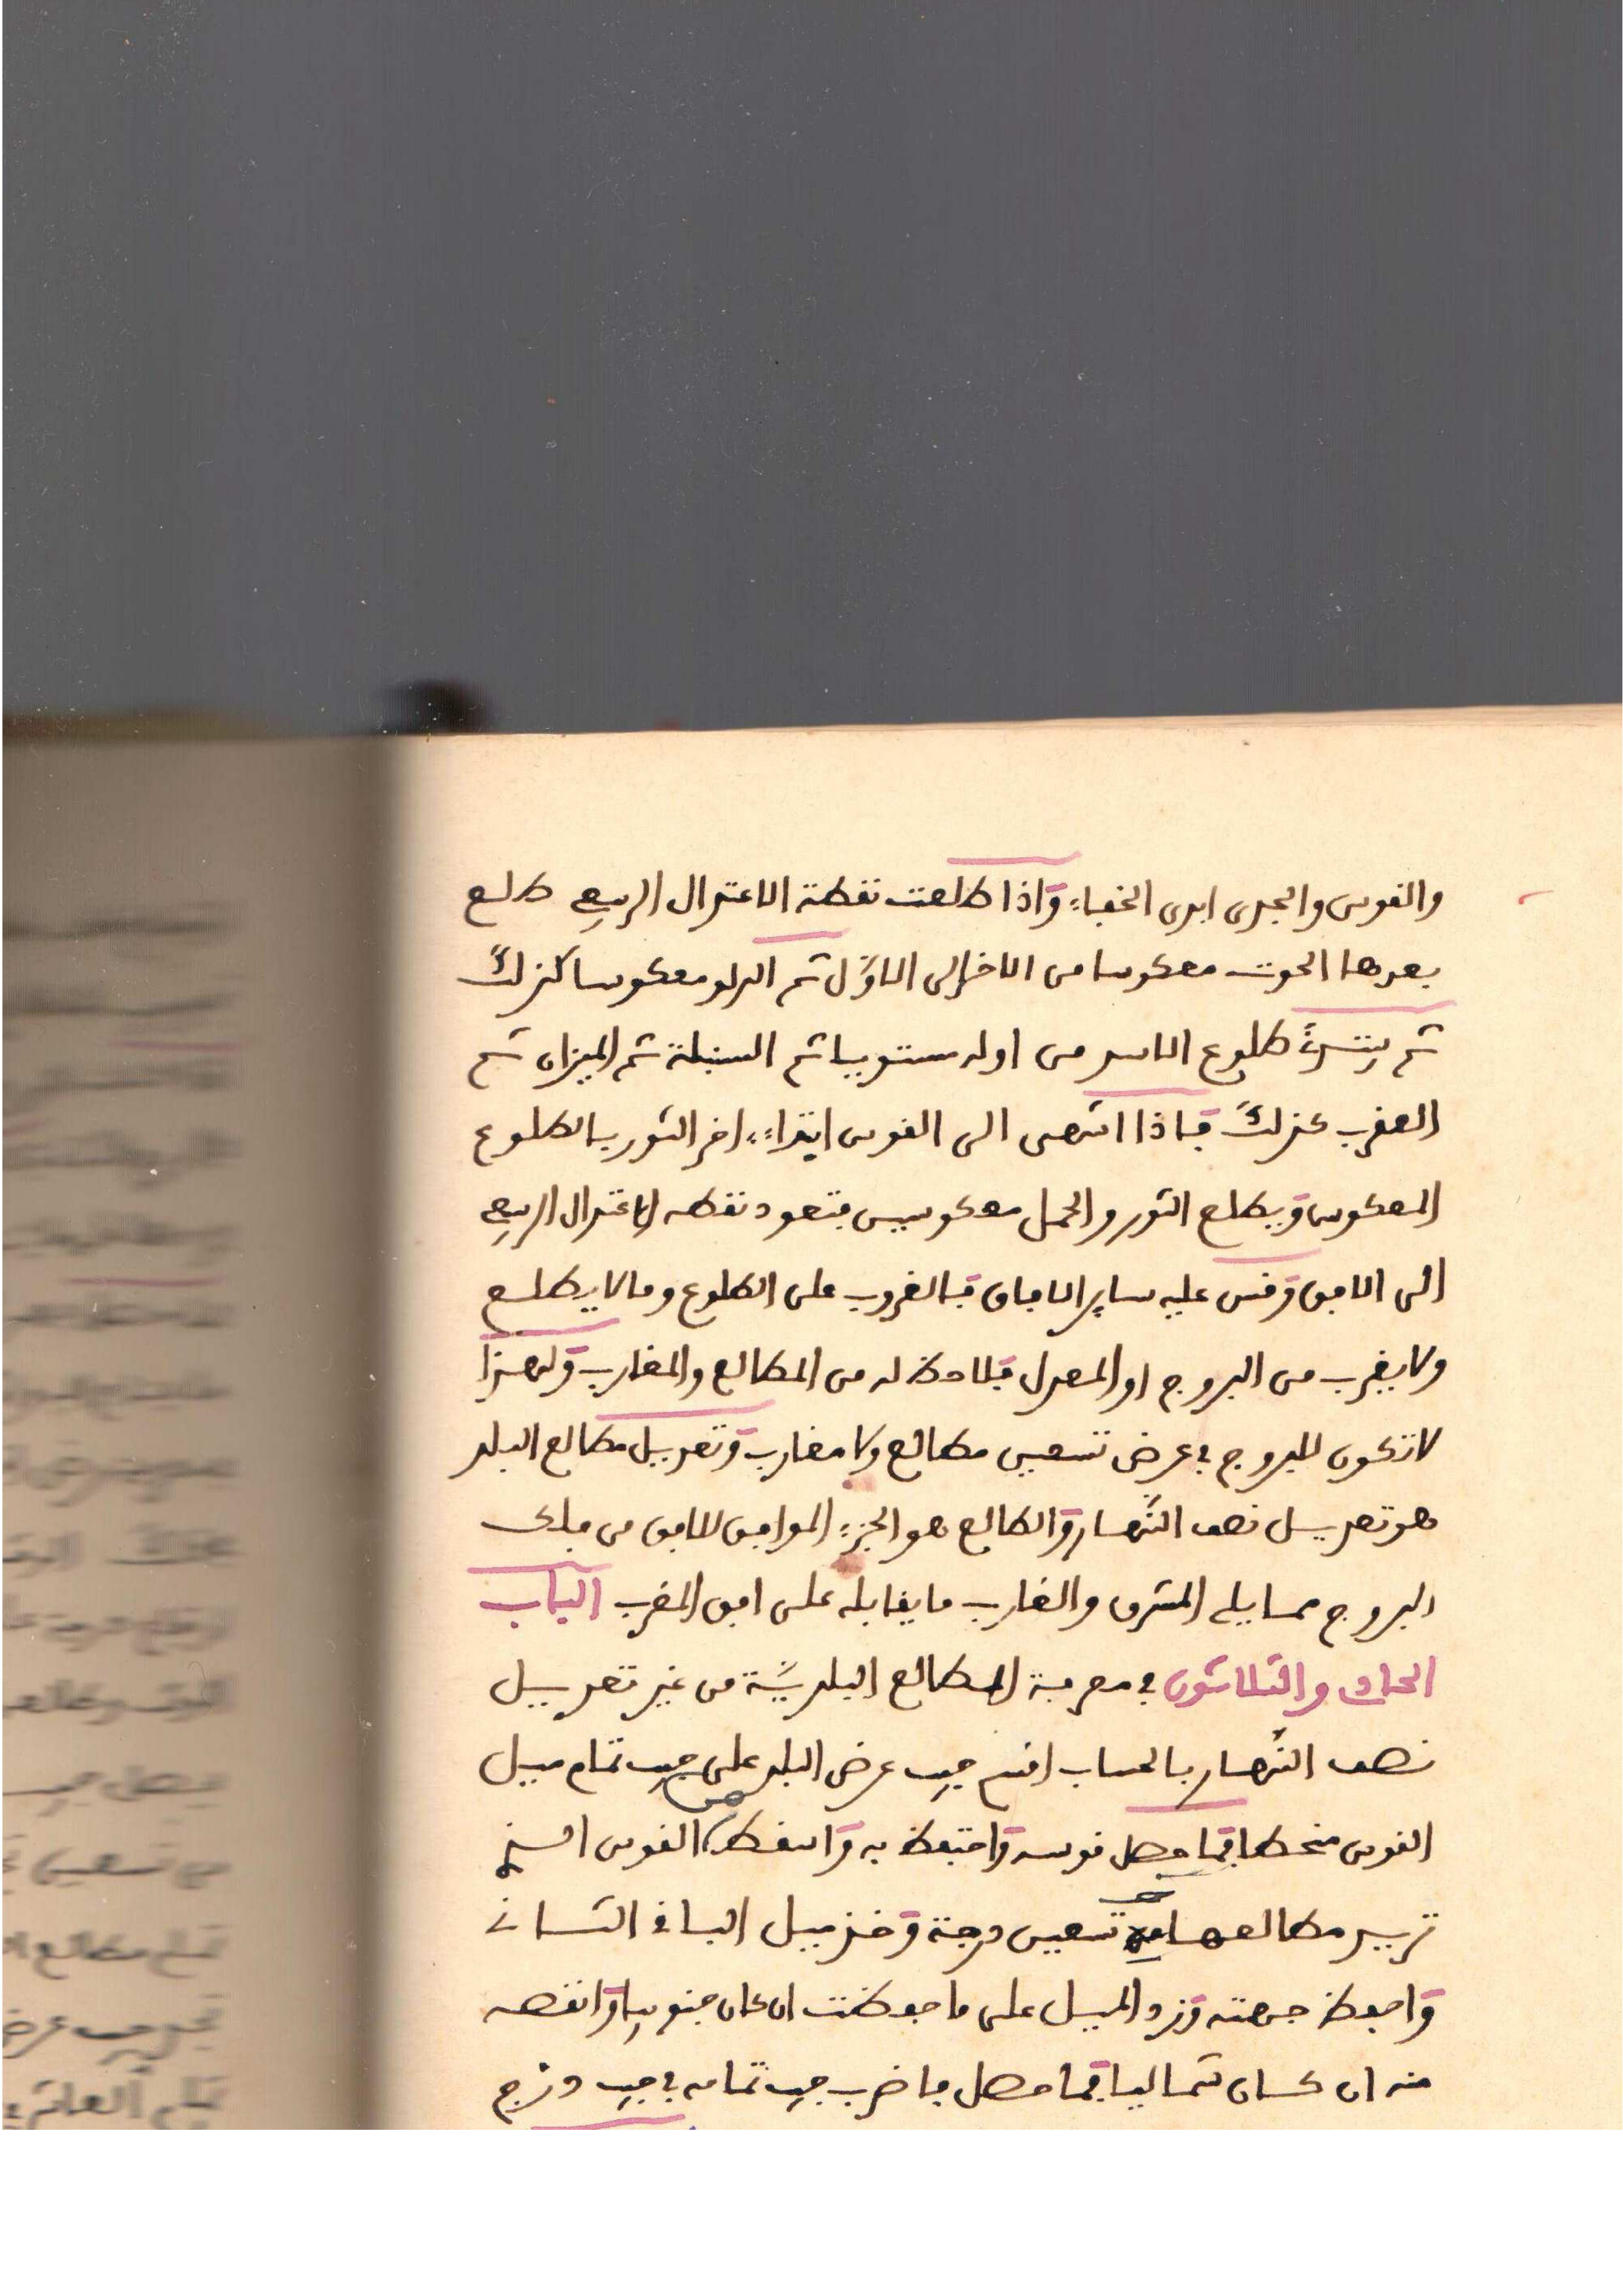 والقوس والجدي ابدى الخفاء واذا طلعت نقطة الاعتدال الربيعي طلع
بعدها الحوت معكوسا من الاخر الى الاول ثم الدلو معكوسا كذلك
ثم يبتدئ طلوع الاسد من اوله مستويا ثم السنبلة ثم الميزان ثم
العقرب كذلك فاذا انتهى الى القوس ابتداء اخر الثور بالطلوع
المعكوس ويطلع الثور والحمل معكوسين فتعود نقطه الاعتدال الربيعي
الى الافق وقس عليه ساير الافاق فالغروب على الطلوع وما لا يطلع
ولا يغرب من البروج او المعدل فلا حظ له من المطالع والمغارب ولهذا
لا تكون للبروج في عرض تسعين مطالع ولا مغارب وتعديل مطالع البلد
هو تعديل نصف النهار والطالع هو الجزء الموافق للافق من فلك
البروج مما يلي المشرق والغارب ما يقابله على افق المغرب الباب
الحادي والثلاثون في معرفة المطالع البلدية من غير تعديل
نصف النهار بالحساب اقسم جيب عرض البلد على جيب تمام ميل
القوس منحطا فما حصل قوسه واحتفظ به واسقط من القوس التي
تريد مطالعها تسعين درجة وخذ ميل الباقي الثاني
واحفظ جهته وزد الميل على ما حفظت ان كان جنوبيا وانقصه
منه ان كان شماليا فما حصل فاضرب جيب تمامه في جيب درج